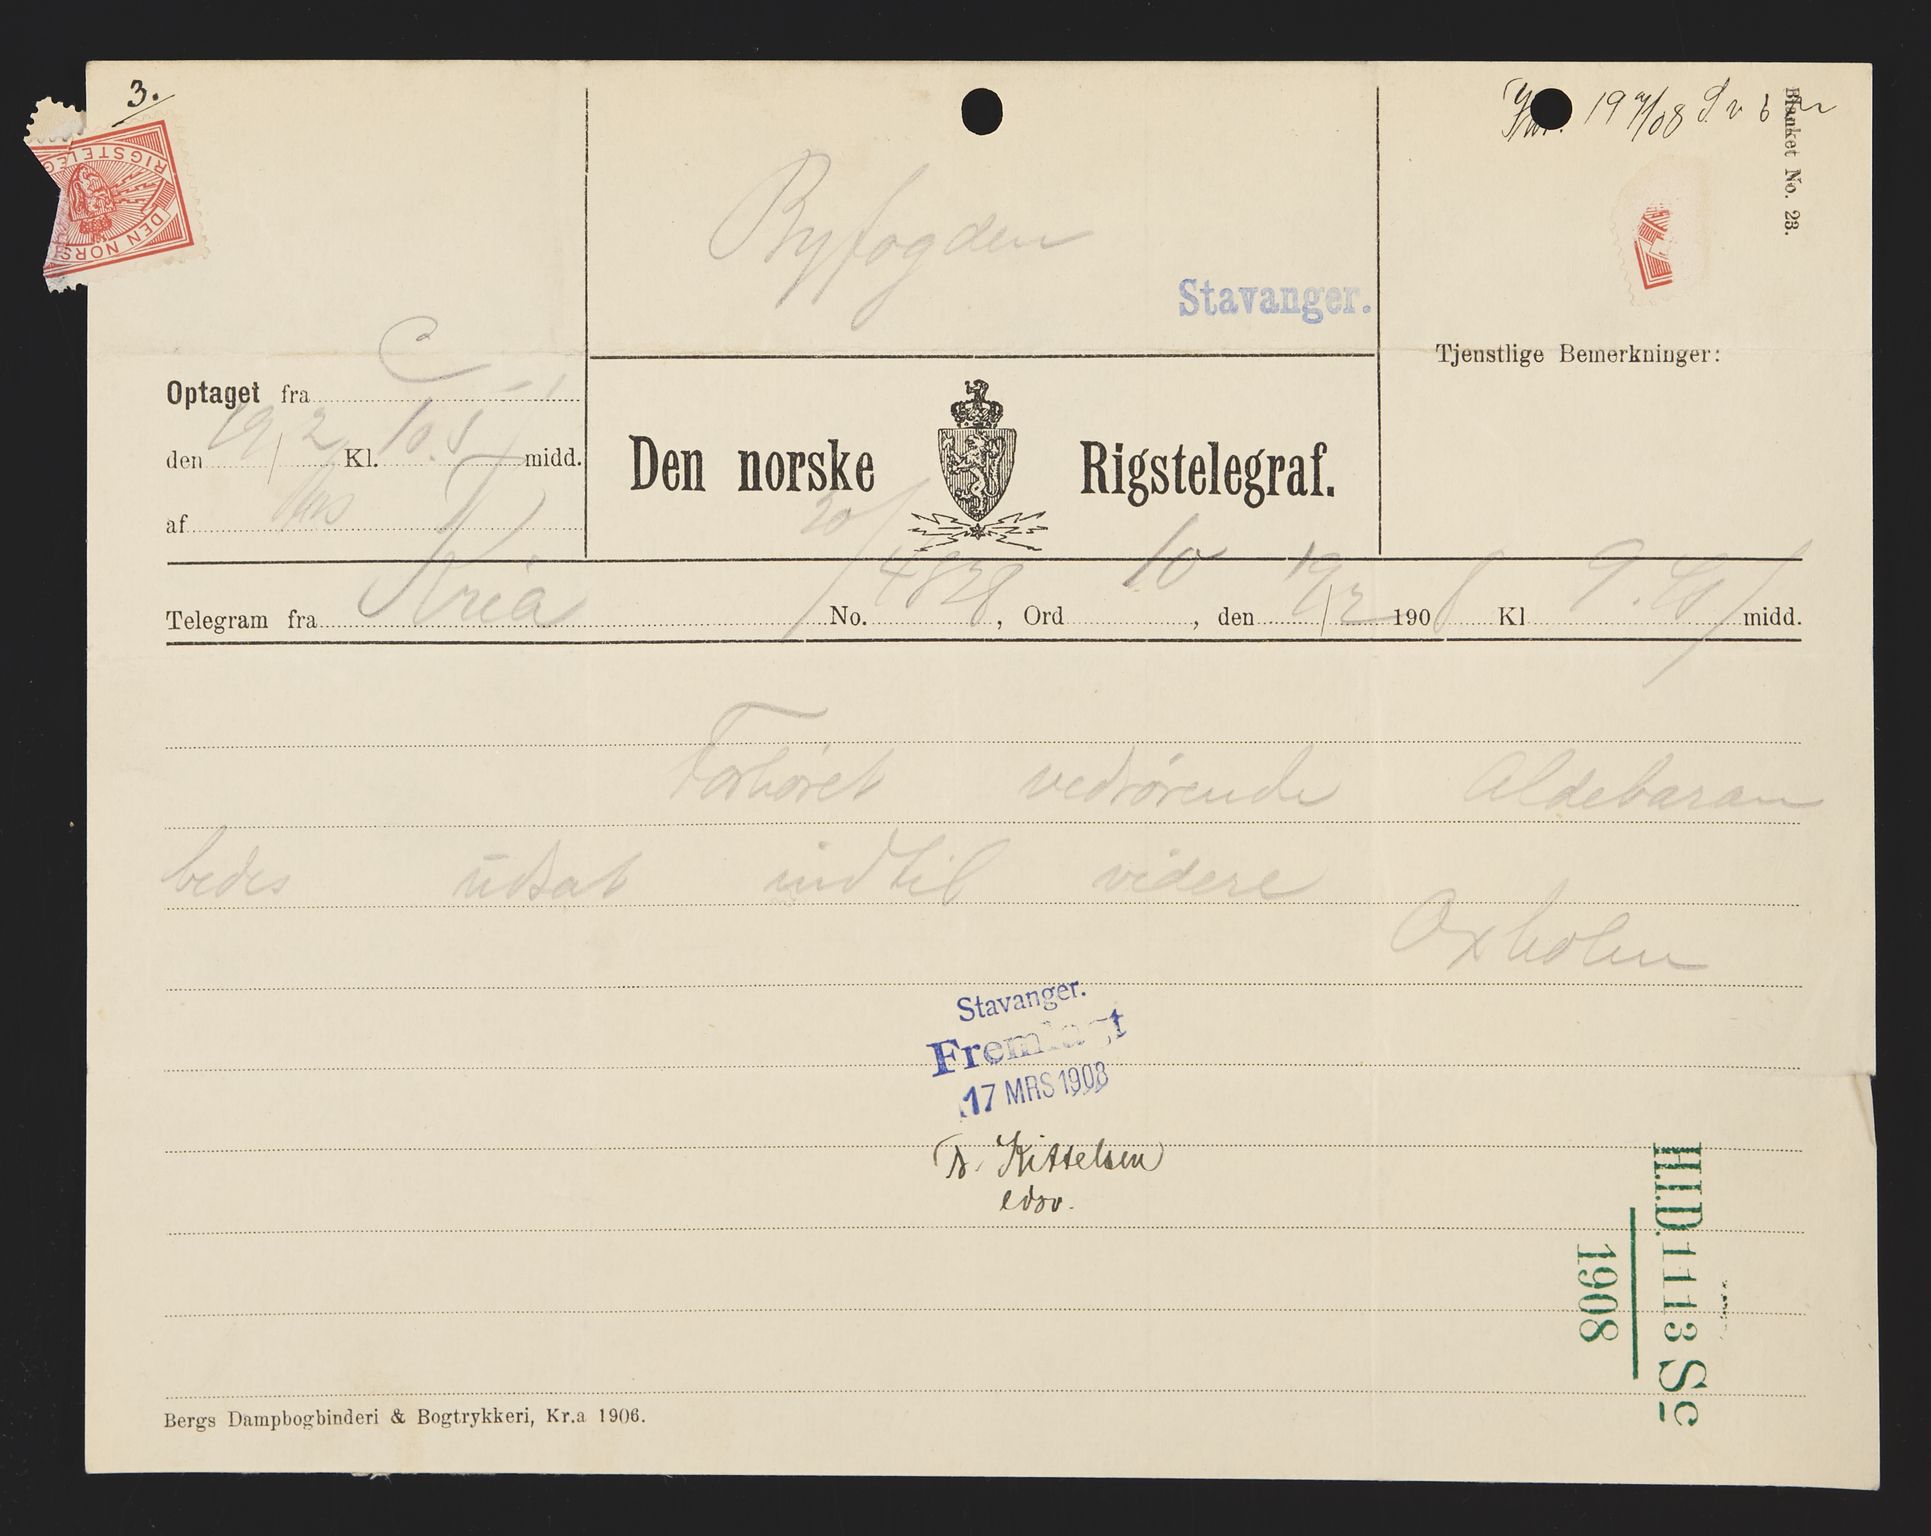 3.
19 2/08
Blanket No. 23.
RIGSTELEG
DEN NORS
Byfogden
Stavanger.
Tjenstlige Bemerkninger:
Optaget fra C
den 19/2 Kl. 10.5 midd.
af
Den norske Rigstelegraf.
Telegram fra Kria No. 4828, Ord 10, den 19/2 1908 Kl 9.40 midd.
Forhøret vedrørende Aldebaran
bedes udsat indtil videre
Oxholm
Stavanger.
Fremlagt
17 MRS 1908
T. Kittelsen
edsv.
H.I.D. 1113 Sc
1908
Bergs Dampbogbinderi & Bogtrykkeri, Kr.a 1906.